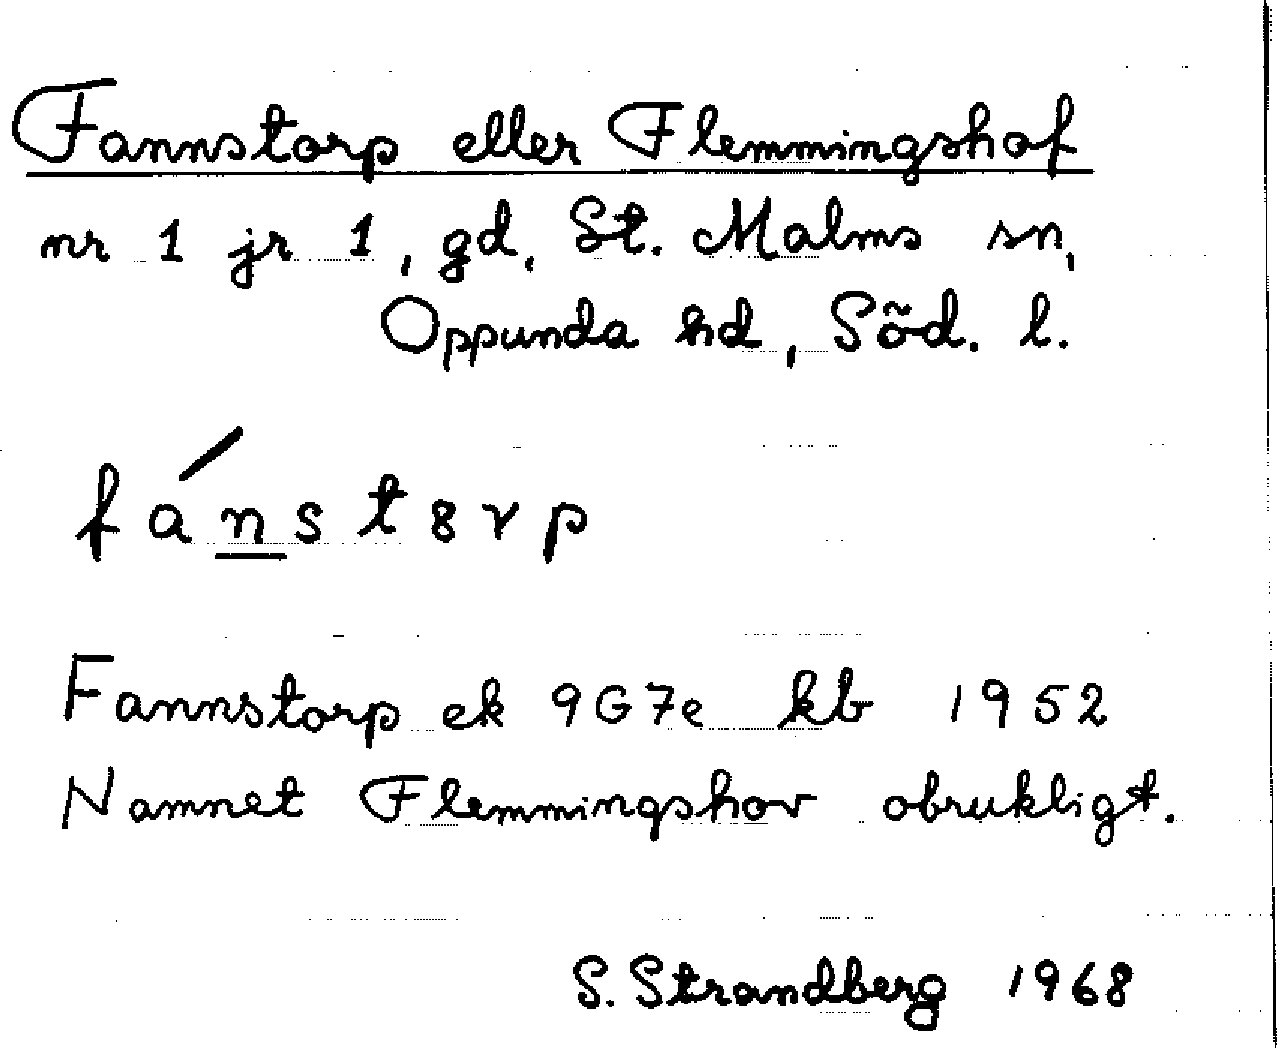 Fannstorp eller Flemmingshof
nr 1 jr 1, gd, St. Malms sn,
Oppunda hd, Söd. l.
fánst8rp
Fannstorp ek 9G7e kb 1952
Namnet Flemmingshov obrukligt.
S. Strandberg 1968